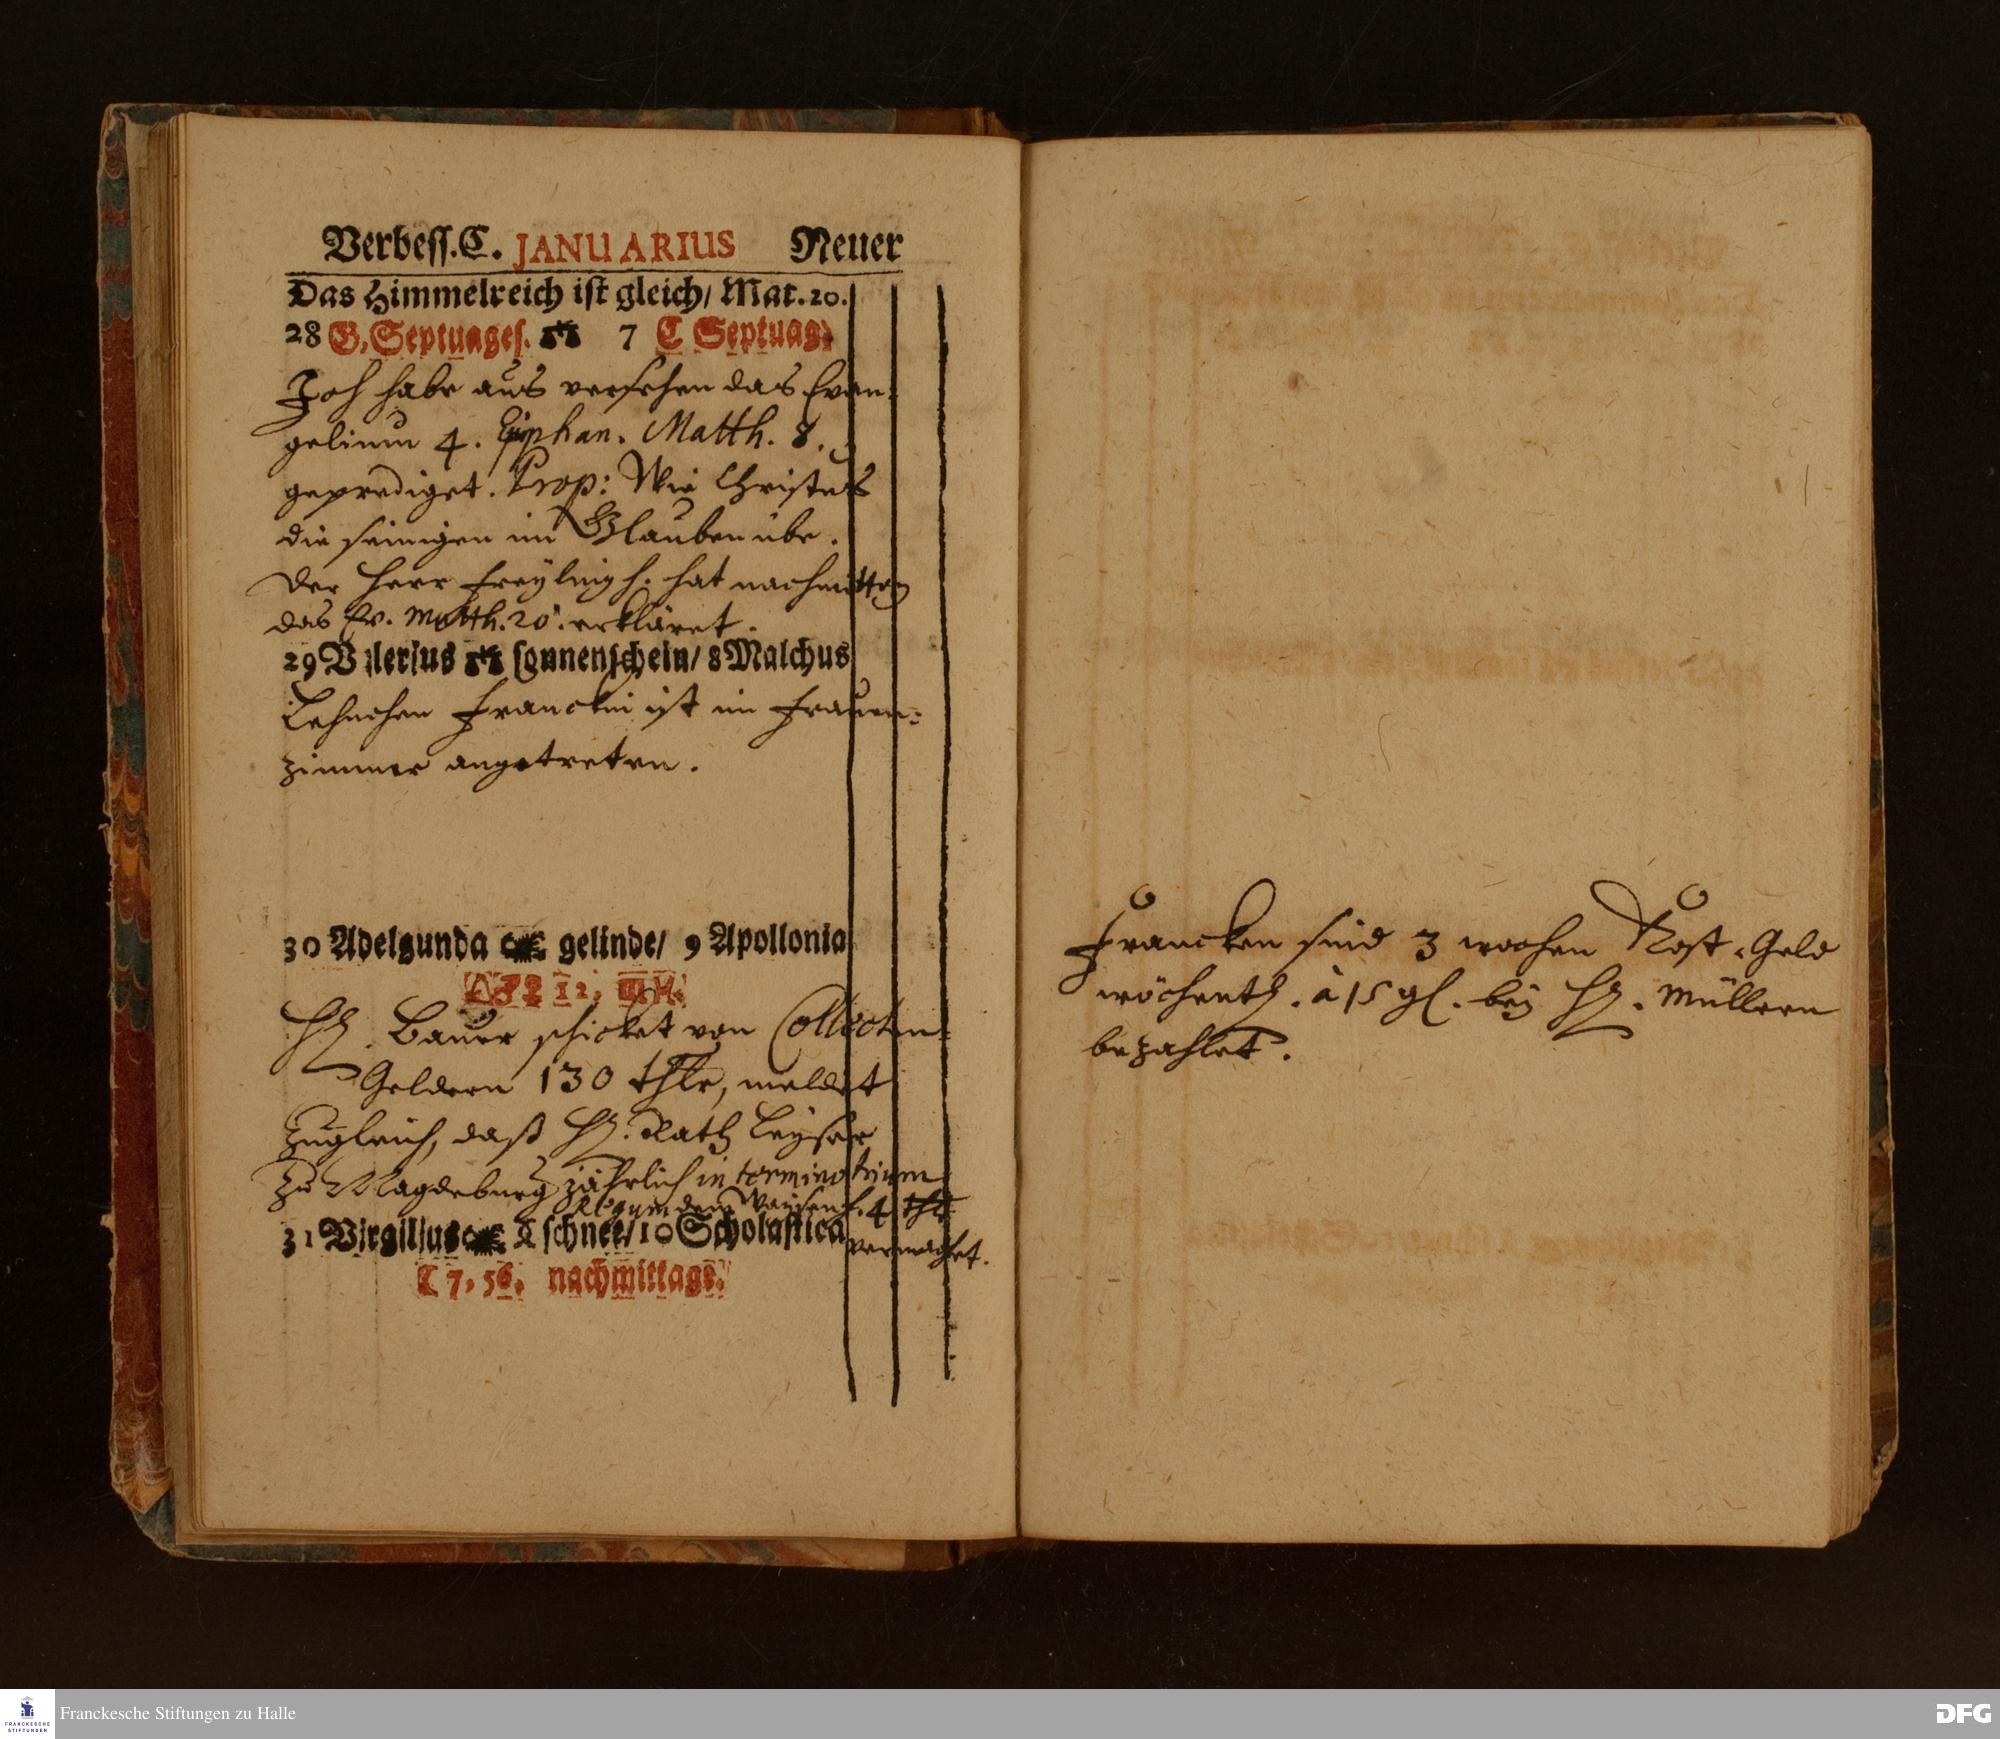 Verbess.C. JANUARIUS Neuer
Das Himmelreich ist gleich/ Mat.20.
28 G. Septuages. 7 C Septuag.
Ich habe aus versehen das Evan-
gelium 4. Epiphan. Matth. 8.
geprediget. Prop: Wie Christus
die seinigen im Glauben übe.
Der Herr Freylingh. hat nachmittag
das Ev. Matth. 20. erkläret.
29 Valerius sonnenschein/ 8 Malchus
Lehnchen Franckin ist im Frauen-
zimmer angetreten.
30 Adelgunda gelinde/ 9 Apollonia
12,
H. Bauer schicket von Collecten-
Geldern 130 thlr, meldet
zugleich, daß H. Rath Leyser
zu Magdeburg jährlich in termino trium
Regum dem Waysenh. 4 thlr
vermachet.
31 Virgilius schnee/ 10 Scholastica
C 7, 56. nachmittags.
Francken sind 3 wochen Kost-Geld
wöchentl. à 15 gl. bey H. Müllern
bezahlet.
Franckesche Stiftungen zu Halle
FRANCKESCHE
STIFTUNGEN
DFG